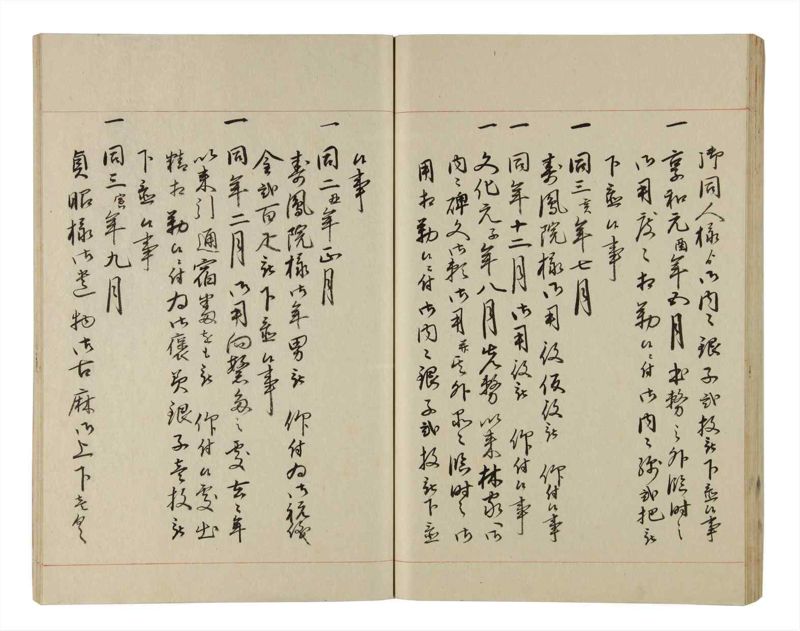 御同人様ゟ御内々銀子弐枚被下置候事
一 享和元酉年五月本務之外臨時之
御用度々相勤候ニ付御内々縞弐把被
下置候事
一 同三亥年七月
寿鳳院様御用役仮役被 仰付候事
一 同年十二月御用役被 仰付候事
一 文化元子年八月先務以来林家
内々碑文御頼御用其外臨時之御
用相勤候ニ付御内々銀子弐枚被下置
候事
一 同二丑年正月
寿鳳院様御年男被 仰付為御祝儀
金弐百疋被下置候事
一 同年二月御用向繁多之処去々年
以来引通宿番被 仰付候処出
精相勤候ニ付為御褒美銀子壱枚被
下置候事
一 同三寅年九月
貞昭様御遺物御古麻御上下壱具